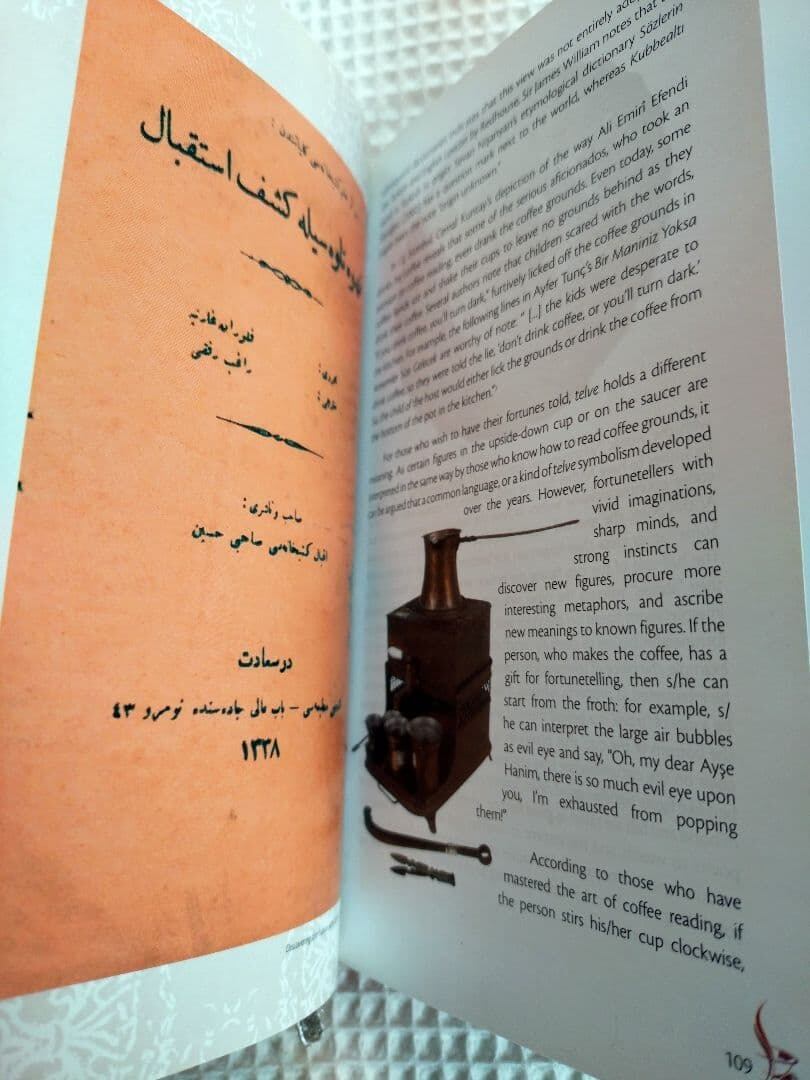 كشف استقبال
فلورانه غارنيه
راغب رفقى
صاحب و ناشرى :
اقبال كتبخانه‌سى صاحبى حسين
درسعادت
باب عالى جاده‌سنده نومرو ٤٣
١٣٣٨
that this view was not entirely
by Redhouse. Sir James William notes that
a question mark next to the world, whereas Kubbealtı
Nişanyan's etymological dictionary Sözlerin
the note "origin unknown."
Cemal Kuntay's depiction of the way Ali Emirî Efendi
coffee reveals that some of the serious aficionados, who took an
coffee reading, even drank the coffee grounds. Even today, some
and shake their cups to leave no grounds behind as they
their coffee. Several authors note that children scared with the words,
coffee, you'll turn dark," furtively licked off the coffee grounds in
for example, the following lines in Ayfer Tunç's Bir Maniniz Yoksa
Size Gelecek are worthy of note. " [...] the kids were desperate to
drink coffee, so they were told the lie, 'don't drink coffee, or you'll turn dark.'
So the child of the host would either lick the grounds or drink the coffee from
the bottom of the pot in the kitchen."
For those who wish to have their fortunes told, telve holds a different
meaning. As certain figures in the upside-down cup or on the saucer are
interpreted in the same way by those who know how to read coffee grounds, it
can be argued that a common language, or a kind of telve symbolism developed
over the years. However, fortunetellers with
vivid imaginations,
sharp minds, and
strong instincts can
discover new figures, procure more
interesting metaphors, and ascribe
new meanings to known figures. If the
person, who makes the coffee, has a
gift for fortunetelling, then s/he can
start from the froth: for example, s/
he can interpret the large air bubbles
as evil eye and say, "Oh, my dear Ayşe
Hanim, there is so much evil eye upon
you, I'm exhausted from popping
them!"
According to those who have
mastered the art of coffee reading, if
the person stirs his/her cup clockwise,
109